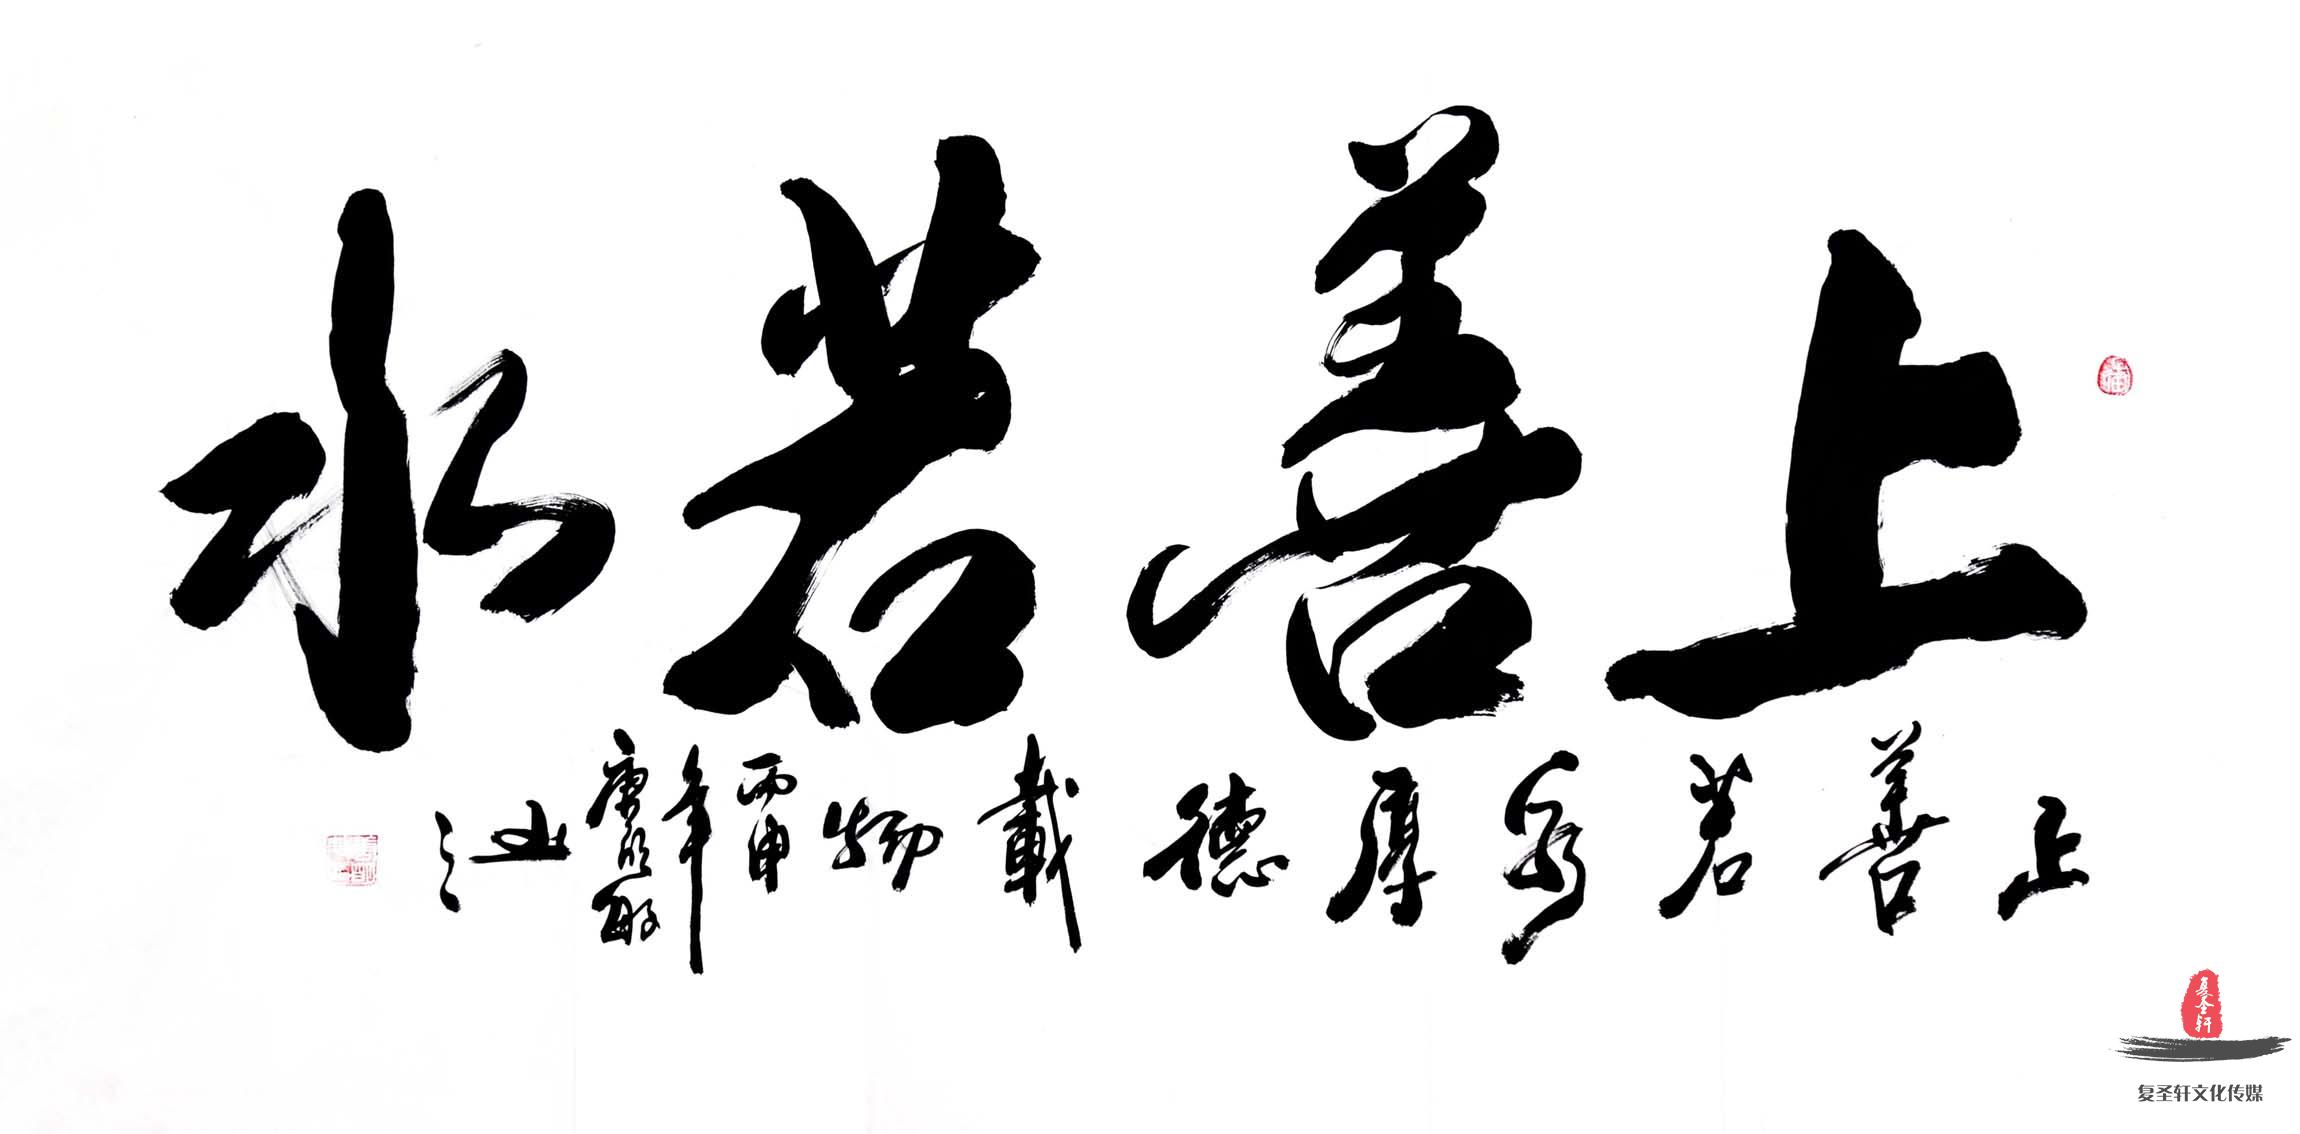 上善若水
上善若厚德載物丙申年
复圣轩
复圣轩文化传媒